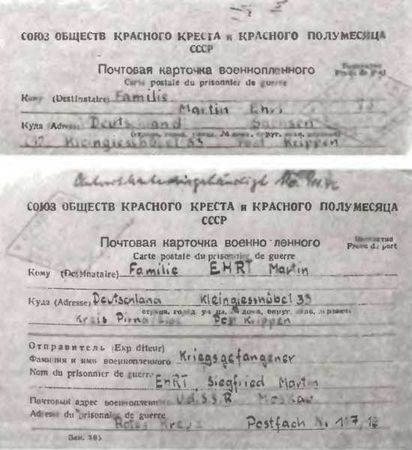 СОЮЗ ОБЩЕСТВ КРАСНОГО КРЕСТА и КРАСНОГО ПОЛУМЕСЯЦА
СССР
Почтовая карточка военнопленного
Carte postale du prisonnier de guerre
Кому (Destinataire) Familie
Martin Ehrt
Куда (Adresse) Deutschland Sachsen
Kleingiesshübel 33 Krippen
СОЮЗ ОБЩЕСТВ КРАСНОГО КРЕСТА и КРАСНОГО ПОЛУМЕСЯЦА
СССР
Почтовая карточка военнопленного
Бесплатно
Carte postale du prisonnier de guerre
Franc de port
Кому (Destinataire) Familie EHRT Martin
Куда (Adresse) Deutschland Kleingiesshübel 33
страна, город, улица, № дома, округ, село, деревня
Kreis Pirna Post Krippen
Отправитель (Expéditeur)
Фамилия и имя военнопленного Kriegsgefangener
Nom du prisonnier de guerre
EHRT Siegfried Martin
Почтовый адрес военнопленного U.d.S.S.R Moskau
Adresse du prisonnier de guerre
Rotes Kreuz Postfach N
Зак. 305